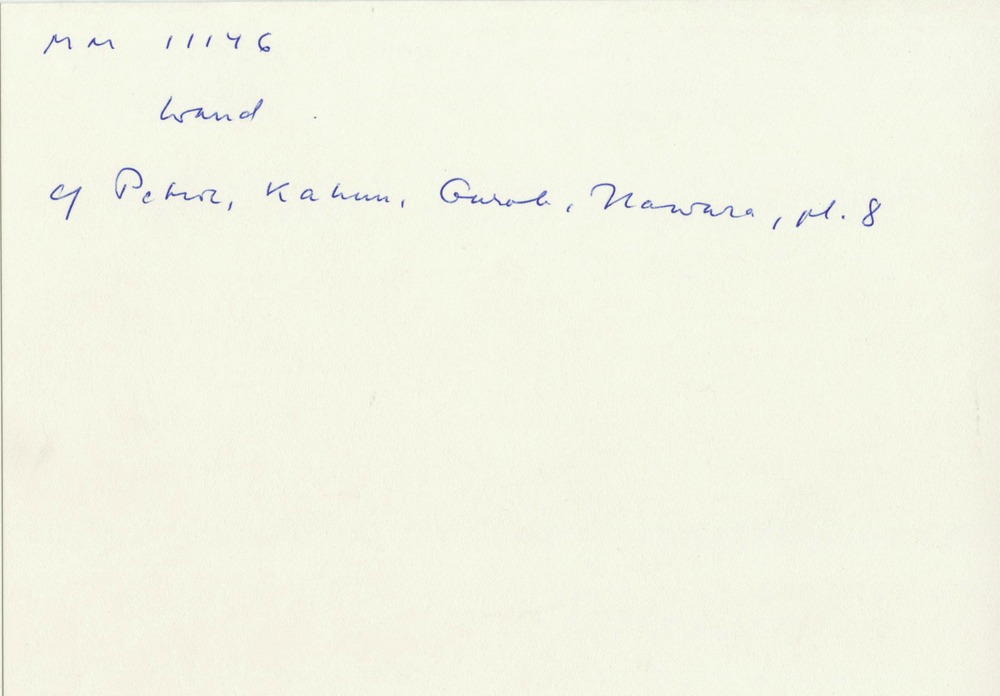 MM 11146
Wand .
cf Petrie, Kahun, Gurob, Hawara, pl. 8